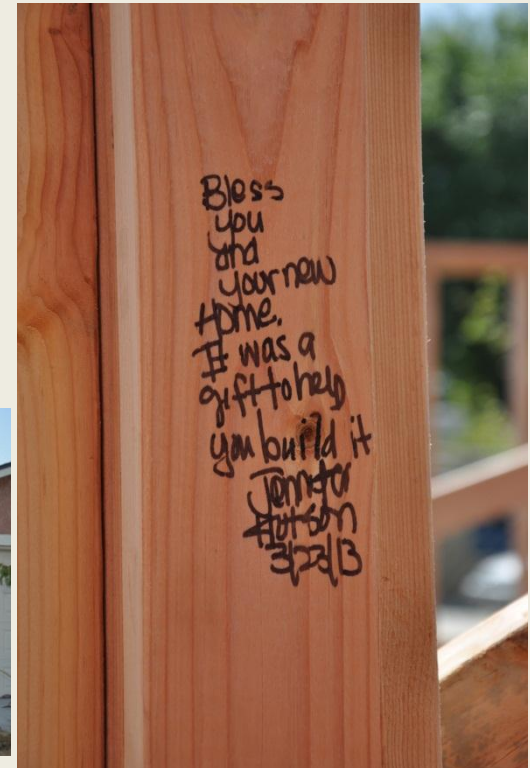 Bless
you
and
your new
Home.
It was a
gift to help
you build it
Jennifer
3/23/13